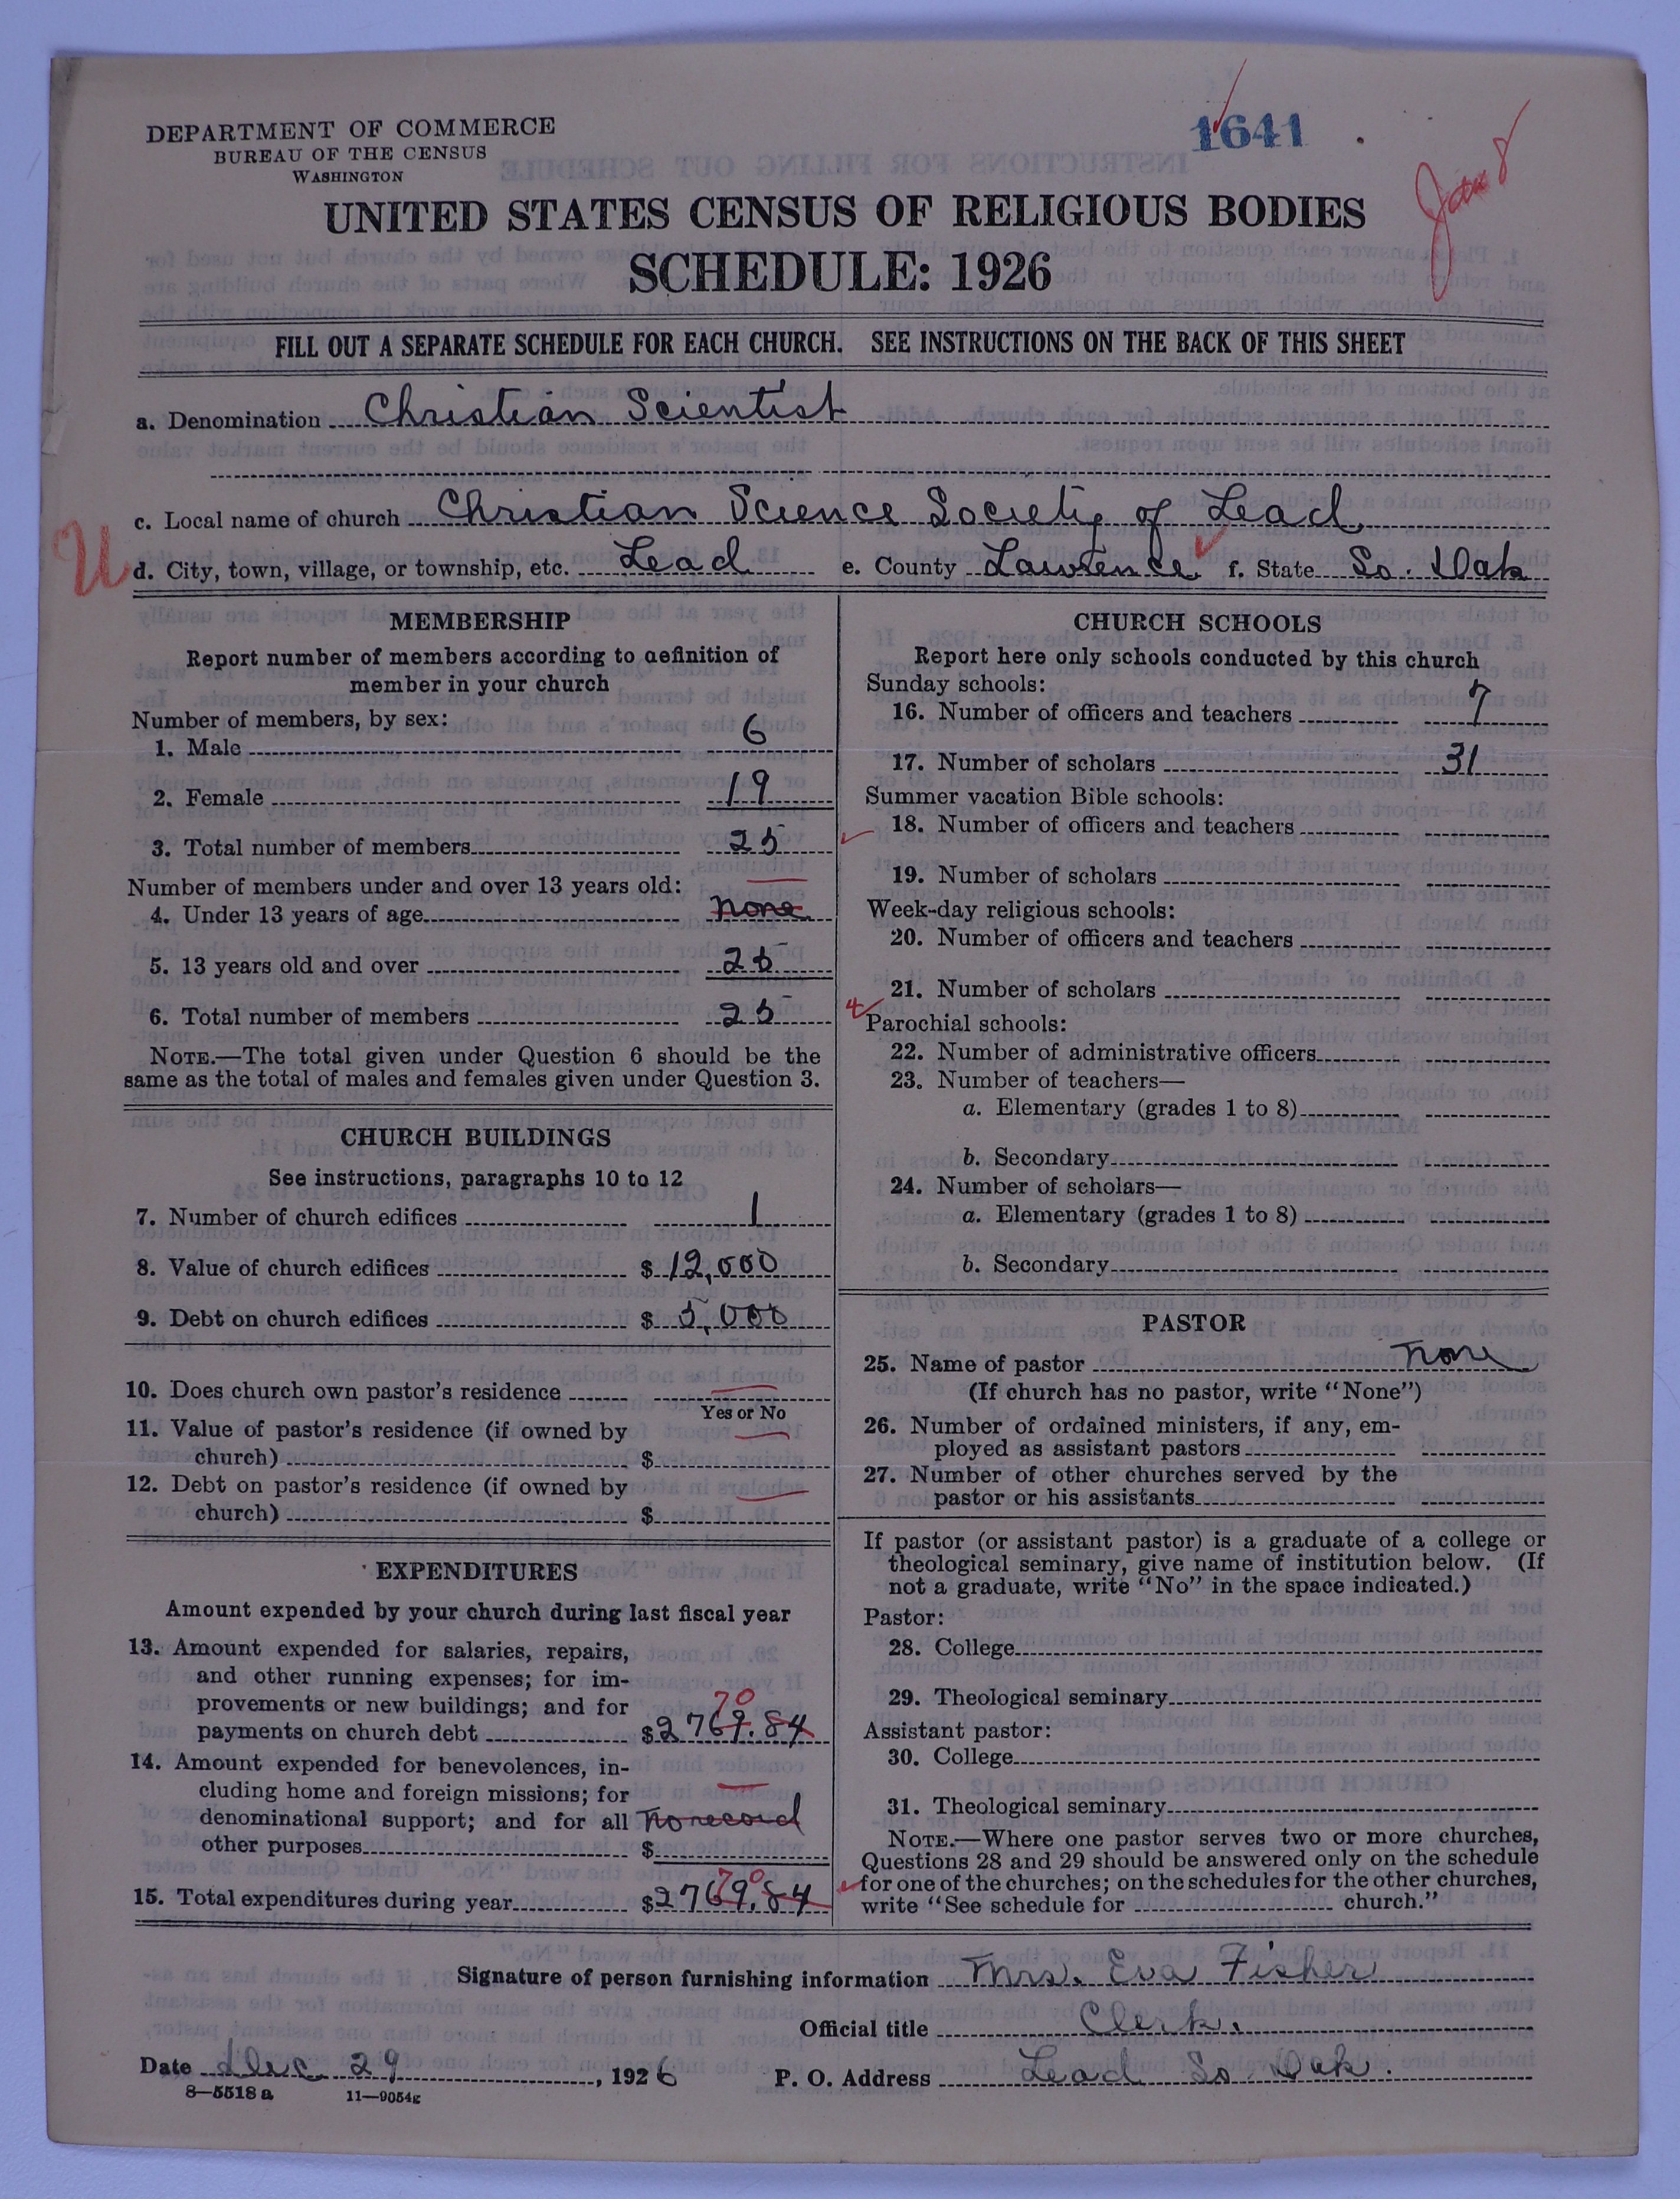 DEPARTMENT OF COMMERCE
BUREAU OF THE CENSUS
WASHINGTON
1641
Jan 8
UNITED STATES CENSUS OF RELIGIOUS BODIES
SCHEDULE: 1926
FILL OUT A SEPARATE SCHEDULE FOR EACH CHURCH. SEE INSTRUCTIONS ON THE BACK OF THIS SHEET
a. Denomination Christian Scientist
c. Local name of church Christian Science Society of Lead
U d. City, town, village, or township, etc. Lead e. County Lawrence f. State So. Dak
MEMBERSHIP
Report number of members according to definition of
member in your church
Number of members, by sex:
1. Male 6
2. Female 19
3. Total number of members 25
Number of members under and over 13 years old:
4. Under 13 years of age none
5. 13 years old and over 25
6. Total number of members 25
NOTE.—The total given under Question 6 should be the
same as the total of males and females given under Question 3.
CHURCH BUILDINGS
See instructions, paragraphs 10 to 12
7. Number of church edifices 1
8. Value of church edifices $ 12,000
9. Debt on church edifices $ 5,000
10. Does church own pastor's residence
Yes or No
11. Value of pastor's residence (if owned by
church) $
12. Debt on pastor's residence (if owned by
church) $
EXPENDITURES
Amount expended by your church during last fiscal year
13. Amount expended for salaries, repairs,
and other running expenses; for im-
provements or new buildings; and for 70
payments on church debt $2769.84
14. Amount expended for benevolences, in-
cluding home and foreign missions; for
denominational support; and for all no record
other purposes $
70
15. Total expenditures during year $2769.84
CHURCH SCHOOLS
Report here only schools conducted by this church
Sunday schools:
16. Number of officers and teachers 7
17. Number of scholars 31
Summer vacation Bible schools:
18. Number of officers and teachers
19. Number of scholars
Week-day religious schools:
20. Number of officers and teachers
21. Number of scholars
Parochial schools:
22. Number of administrative officers
23. Number of teachers—
a. Elementary (grades 1 to 8)
b. Secondary
24. Number of scholars—
a. Elementary (grades 1 to 8)
b. Secondary
PASTOR
25. Name of pastor None
(If church has no pastor, write "None")
26. Number of ordained ministers, if any, em-
ployed as assistant pastors
27. Number of other churches served by the
pastor or his assistants
If pastor (or assistant pastor) is a graduate of a college or
theological seminary, give name of institution below. (If
not a graduate, write "No" in the space indicated.)
Pastor:
28. College
29. Theological seminary
Assistant pastor:
30. College
31. Theological seminary
NOTE.—Where one pastor serves two or more churches,
Questions 28 and 29 should be answered only on the schedule
for one of the churches; on the schedules for the other churches,
write "See schedule for church."
Signature of person furnishing information Mrs. Eva Fisher
Official title Clerk.
Date Dec 29, 1926 P. O. Address Lead So Dak.
8—5518 a 11—9054g